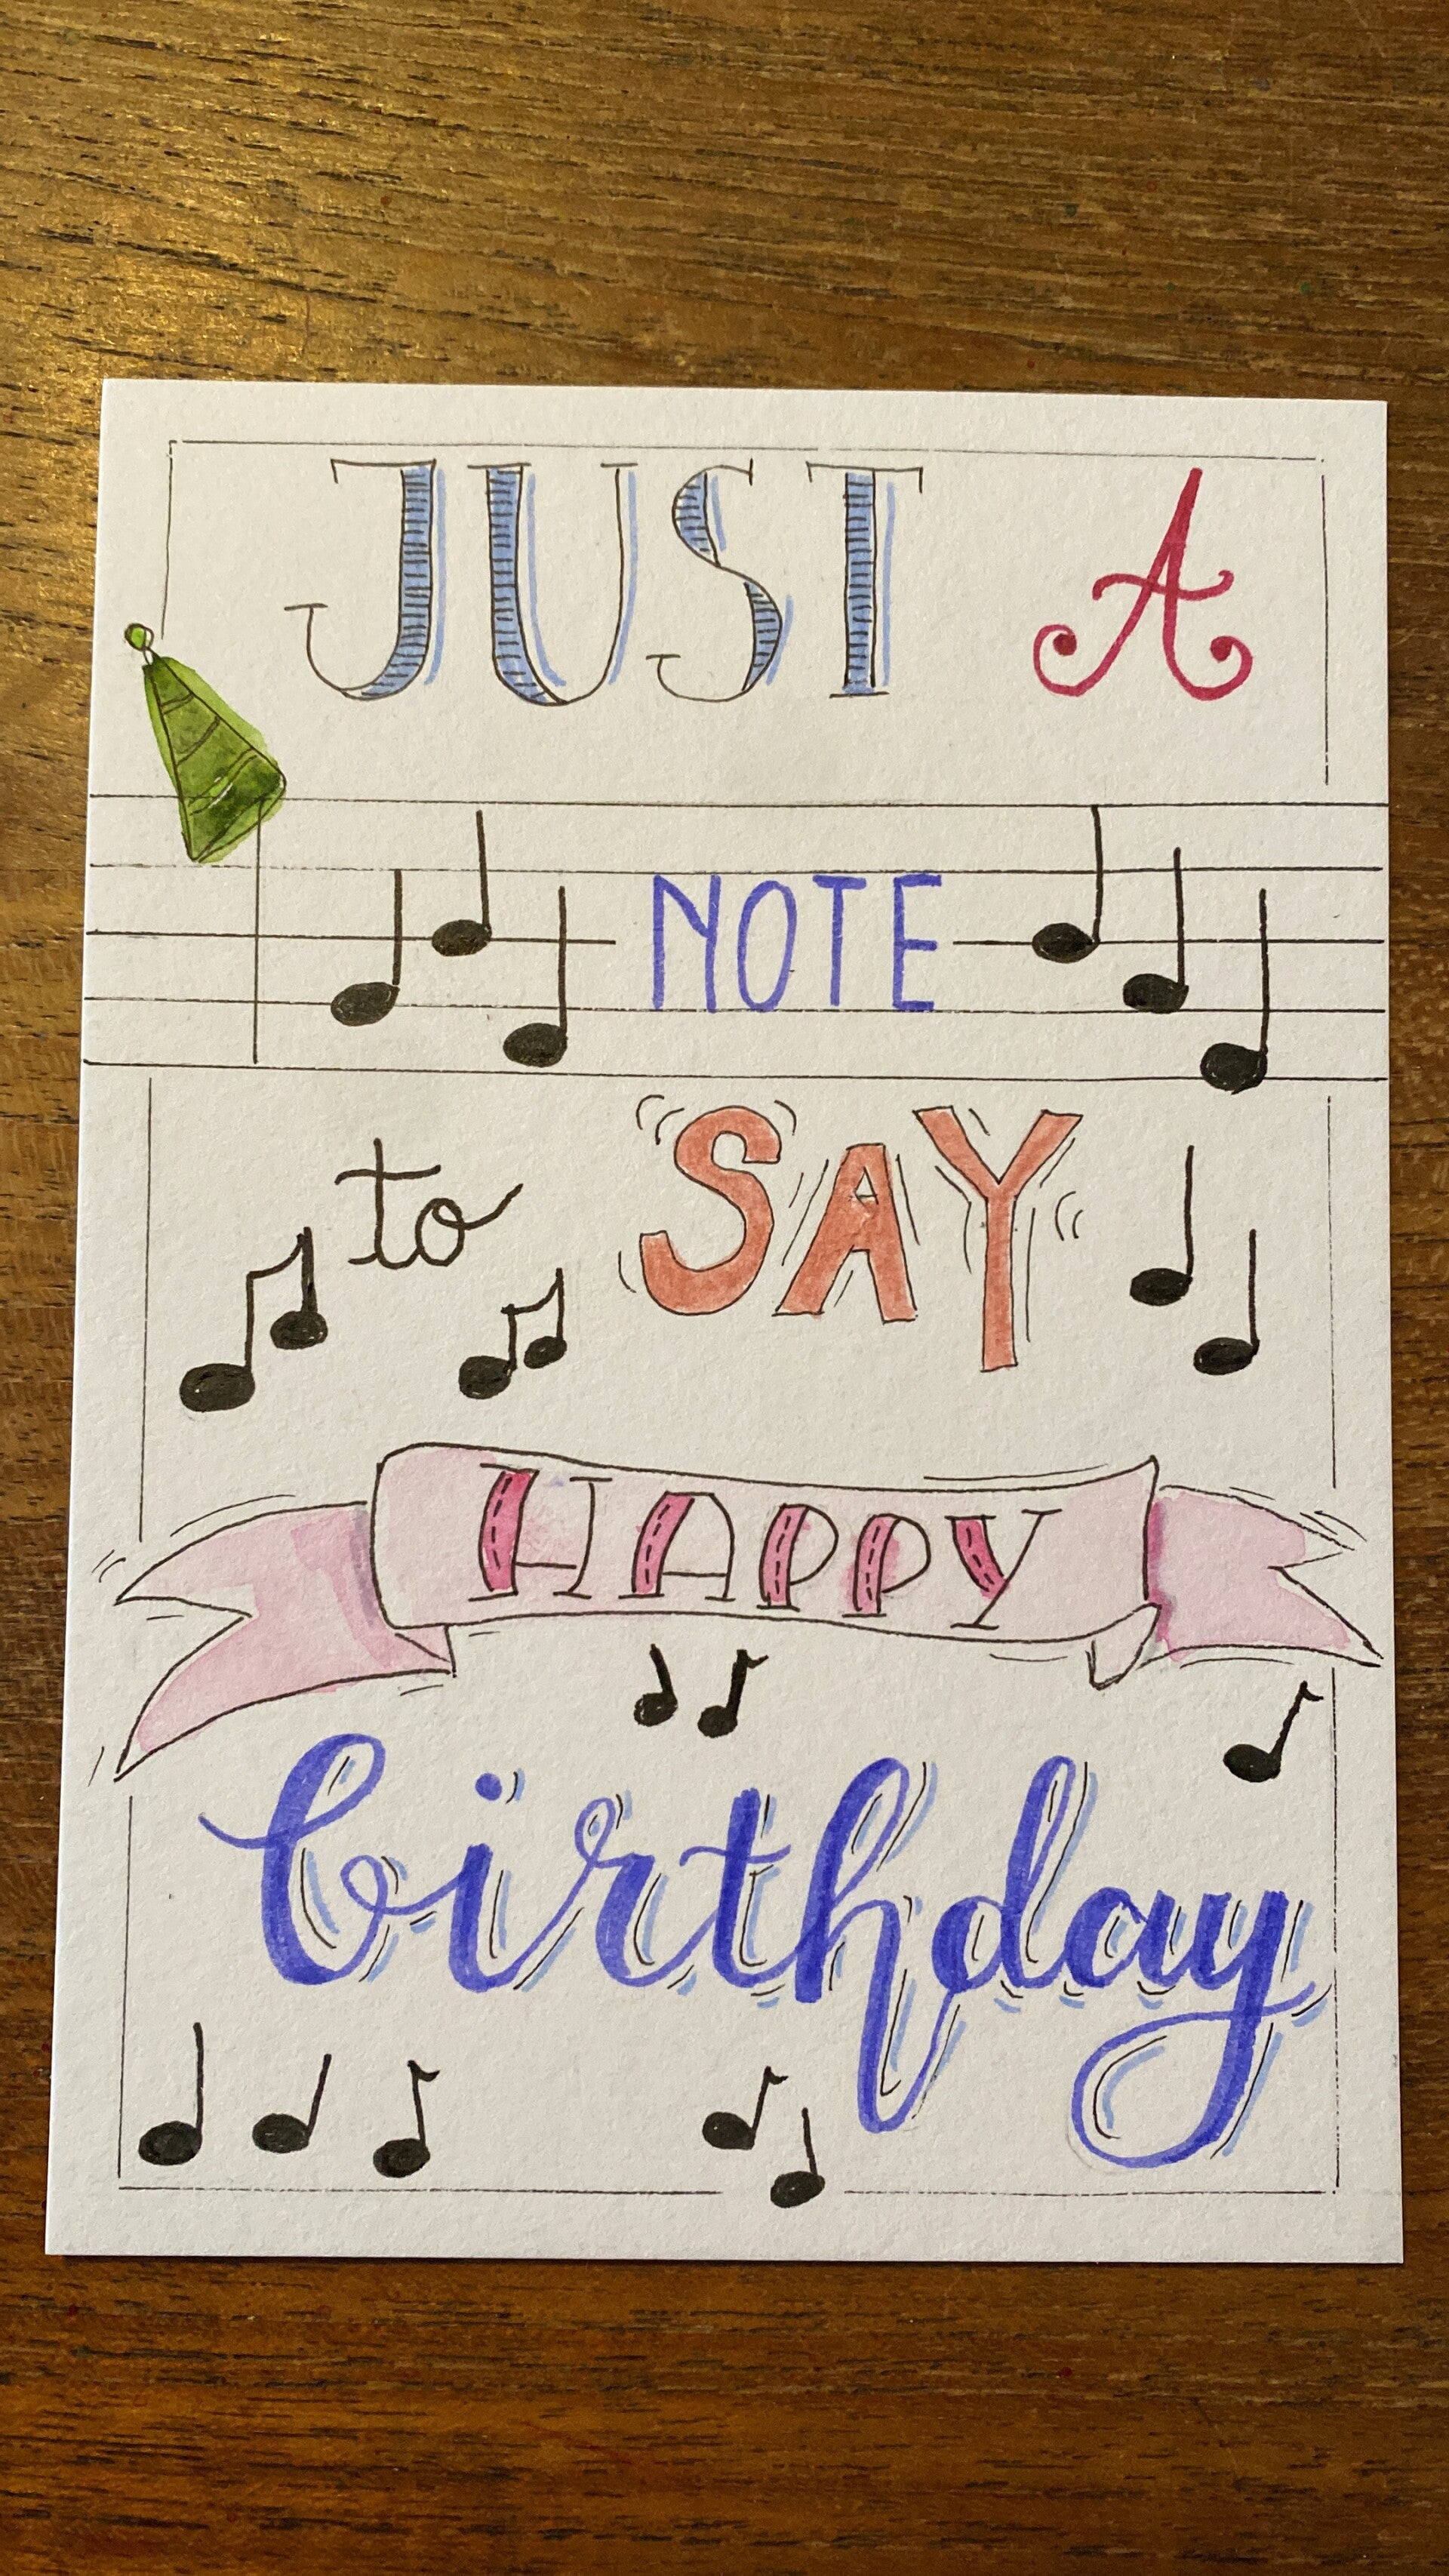 JUST A
NOTE
to SAY
HAPPY
birthday